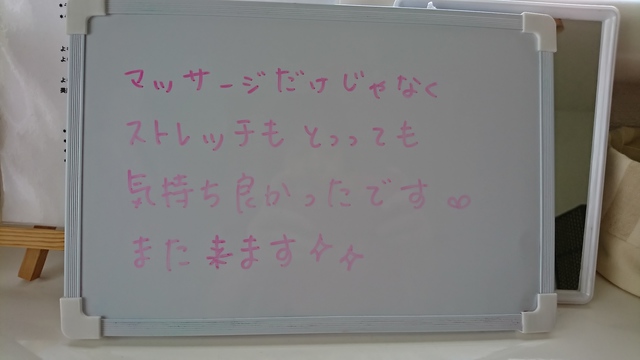 マッサージだけじゃなく
ストレッチもとっっても
気持ち良かったです♡
また来ます✧✧